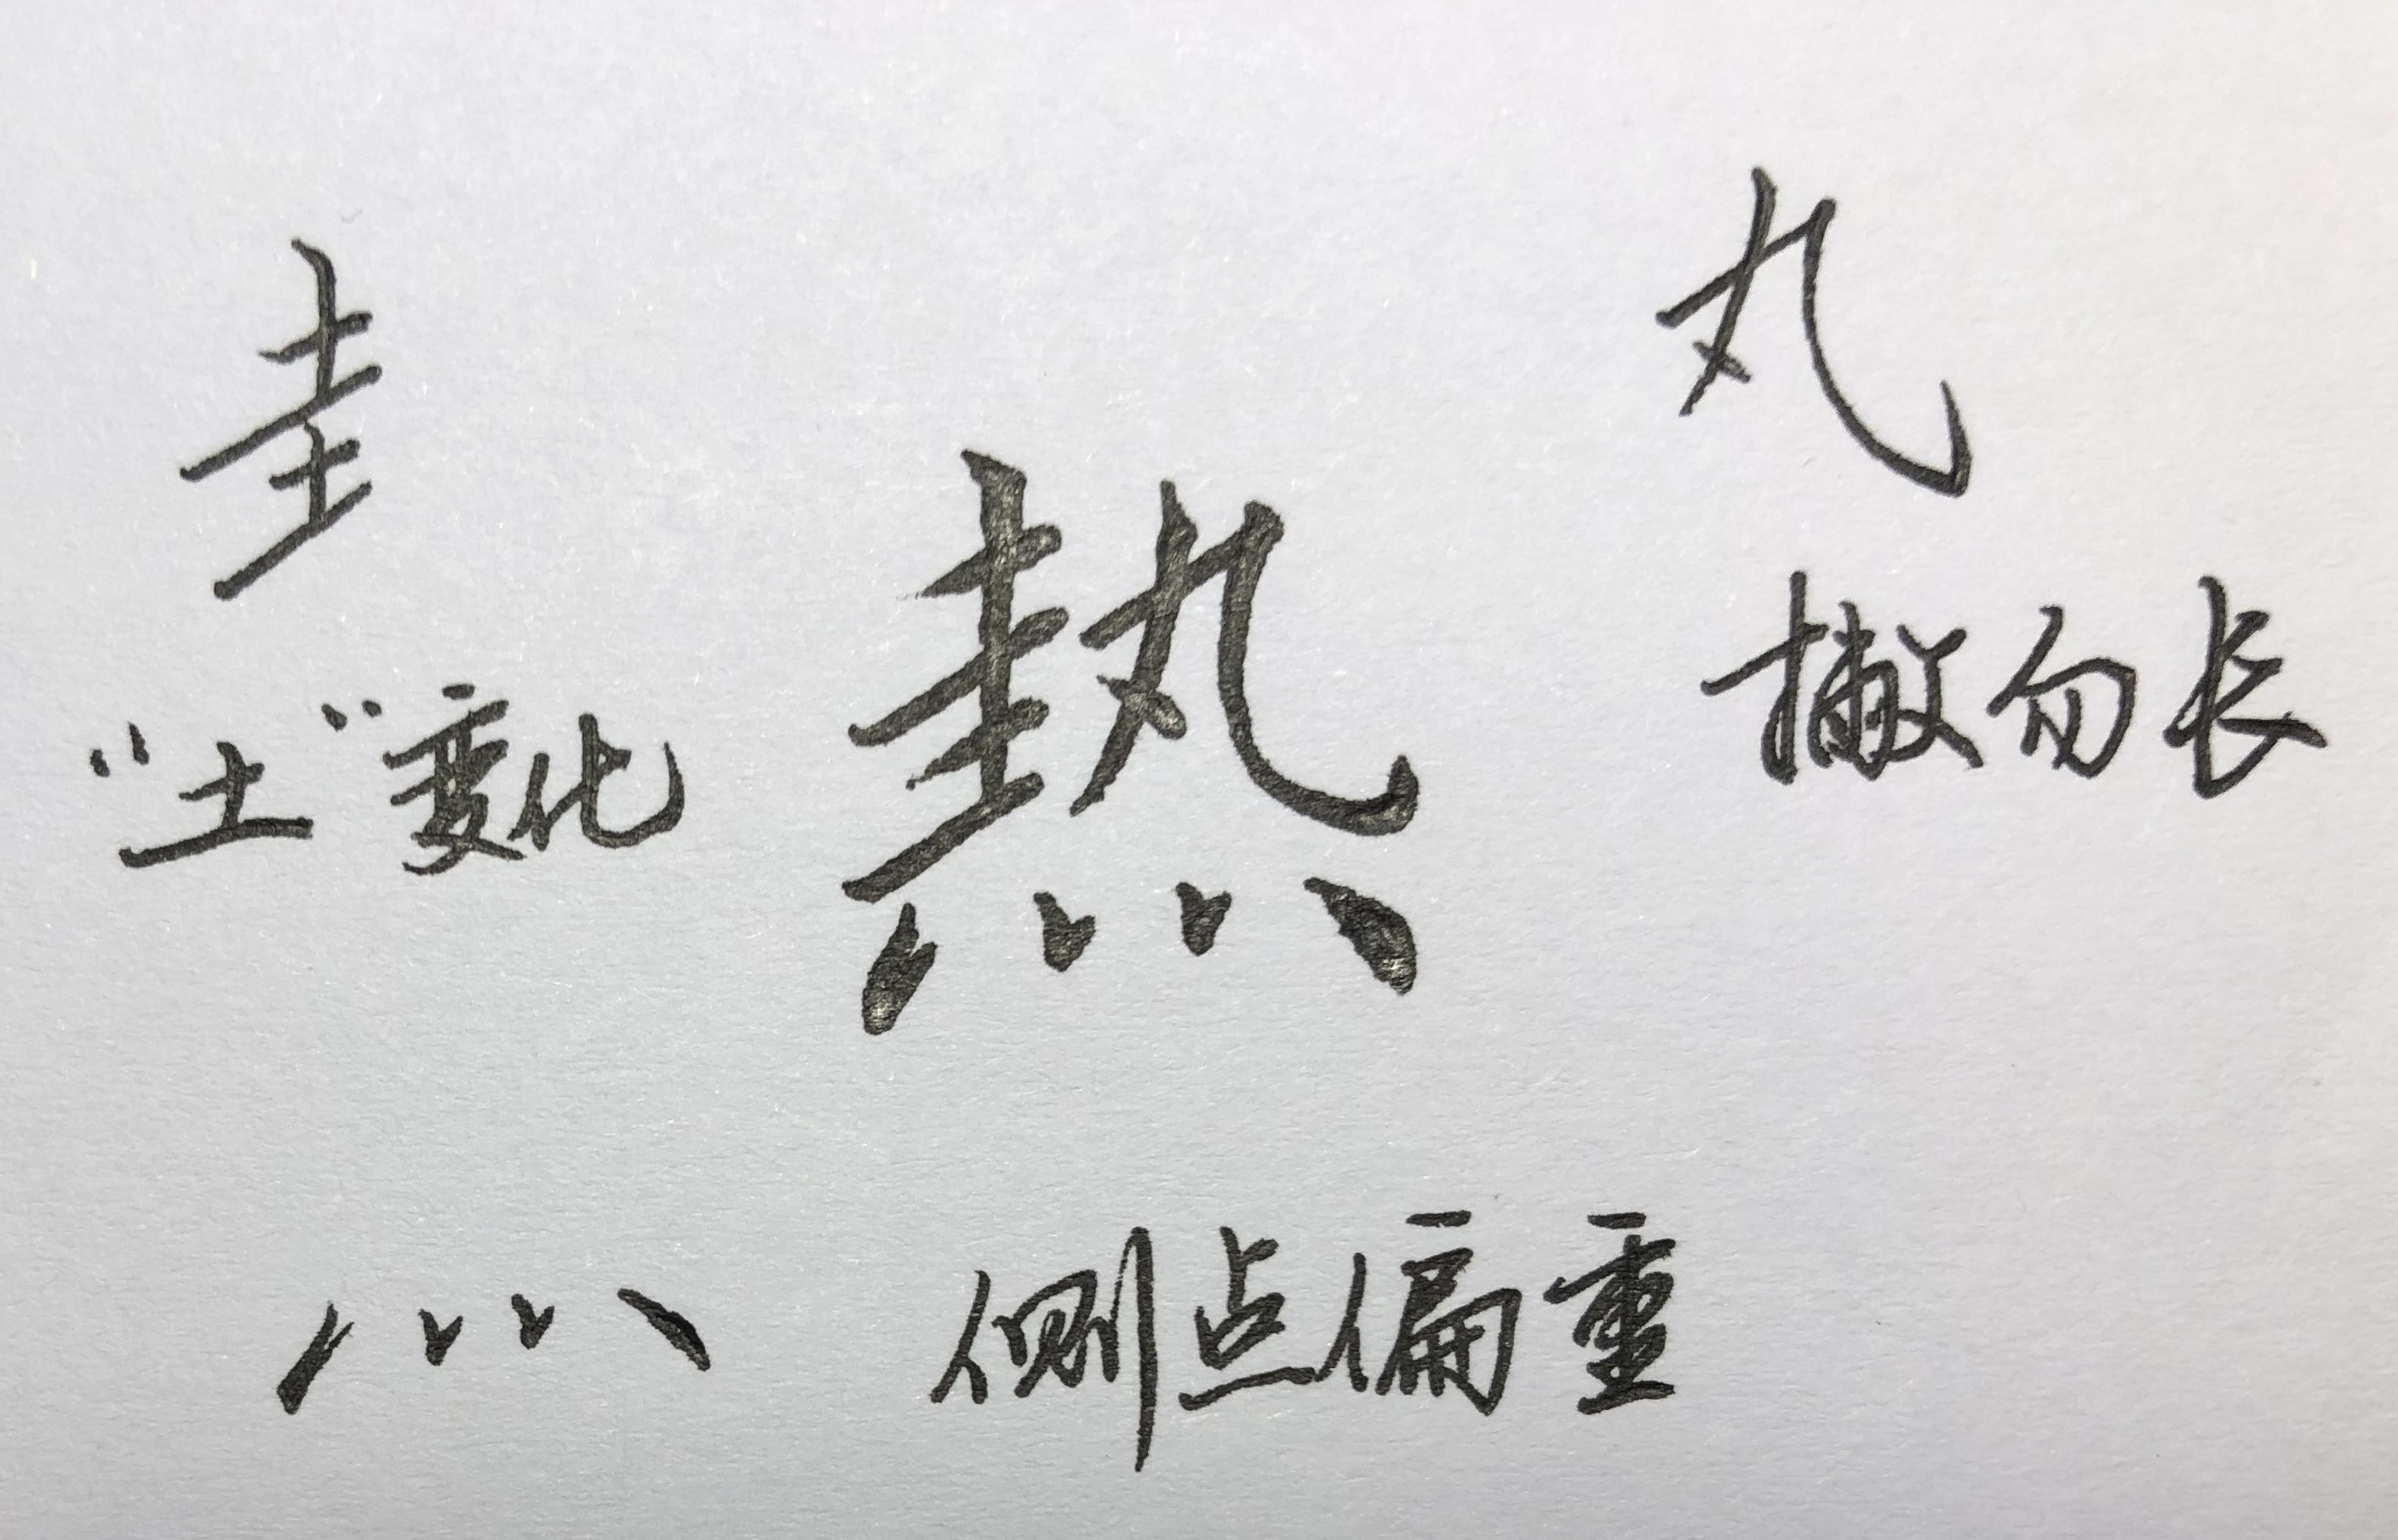 圭
丸
熱
"土"变化
撇勿长
灬
侧点偏重